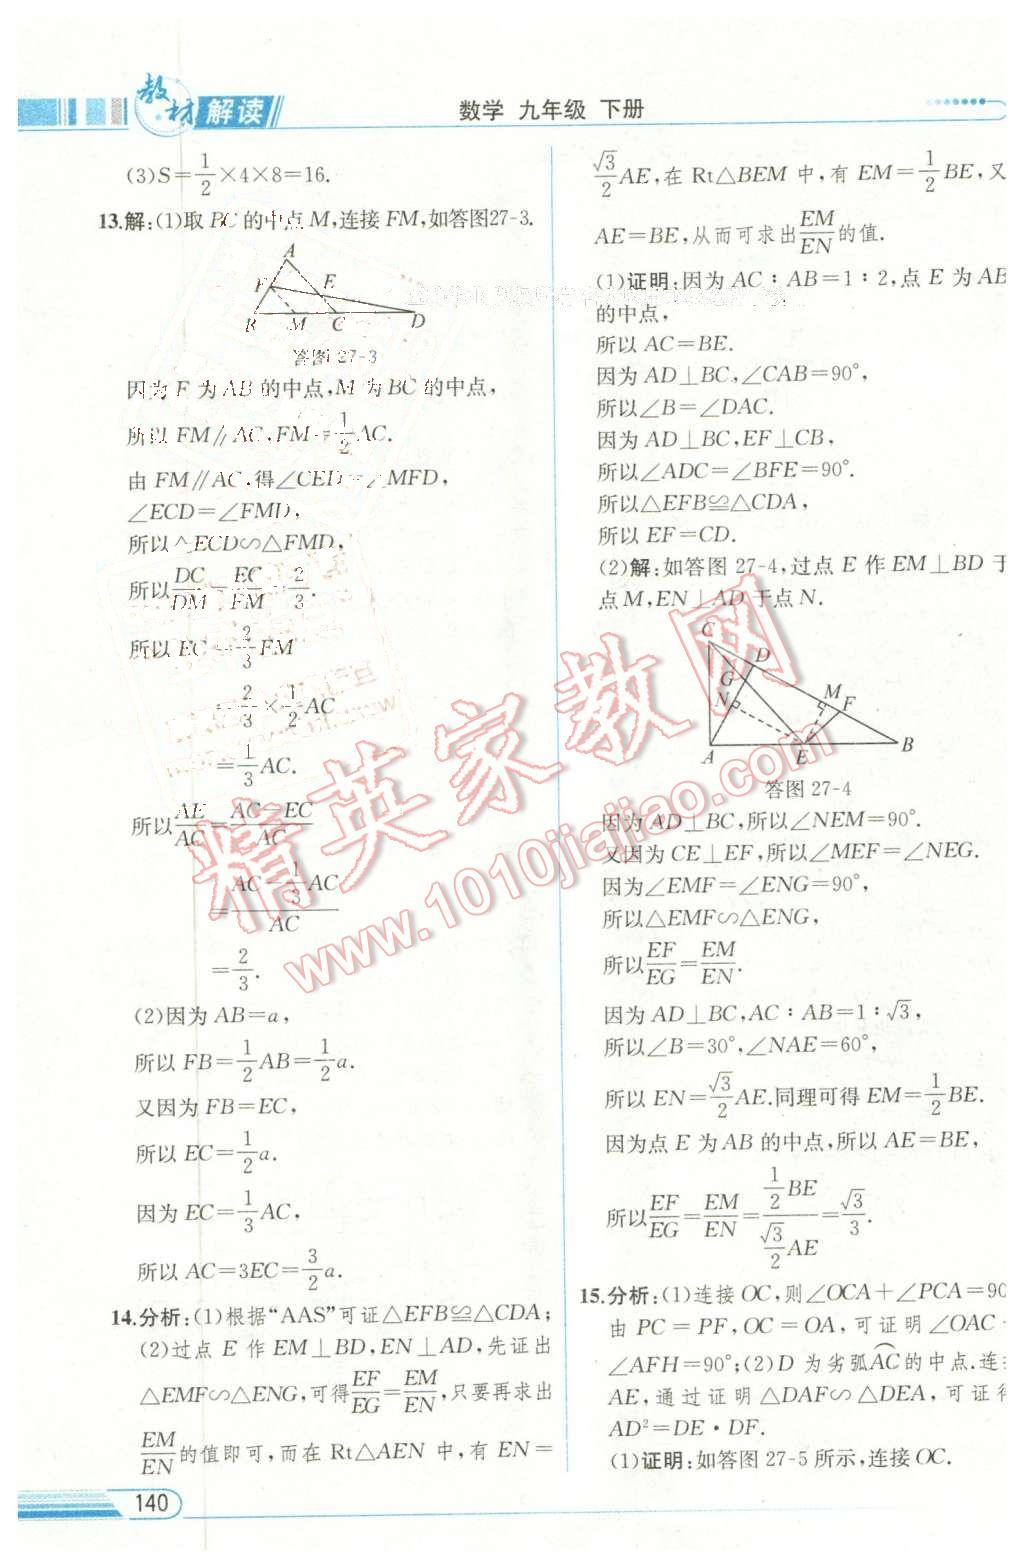 教材解读
数学 九年级 下册
(3)S=1/2×4×8=16.
13.解:(1)取 BC 的中点 M,连接 FM,如答图27-3.
A
F E
B M C D
答图 27-3
因为 F 为 AB 的中点,M 为 BC 的中点,
所以 FM∥AC,FM=1/2AC.
由 FM∥AC,得∠CED=∠MFD,
∠ECD=∠FMD,
所以△ECD∽△FMD,
所以DC/DM=EC/FM=2/3.
所以 EC=2/3FM
=2/3×1/2AC
=1/3AC.
所以AE/AC=(AC-EC)/AC
=(AC-1/3AC)/AC
=2/3.
(2)因为 AB=a,
所以 FB=1/2AB=1/2a.
又因为 FB=EC,
所以 EC=1/2a.
因为 EC=1/3AC,
所以 AC=3EC=3/2a.
14.分析:(1)根据“AAS”可证△EFB≌△CDA;
(2)过点 E 作 EM⊥BD,EN⊥AD,先证出
△EMF∽△ENG,可得EF/EG=EM/EN,只要再求出
EM/EN的值即可,而在 Rt△AEN 中,有 EN=
√3/2AE,在 Rt△BEM 中,有 EM=1/2BE,又
AE=BE,从而可求出EM/EN的值.
(1)证明:因为 AC∶AB=1∶2,点 E 为 AB
的中点,
所以 AC=BE.
因为 AD⊥BC,∠CAB=90°,
所以∠B=∠DAC.
因为 AD⊥BC,EF⊥CB,
所以∠ADC=∠BFE=90°.
所以△EFB≌△CDA,
所以 EF=CD.
(2)解:如答图 27-4,过点 E 作 EM⊥BD 于
点 M,EN⊥AD 于点 N.
C
D
G
N M F
A E B
答图 27-4
因为 AD⊥BC,所以∠NEM=90°.
又因为 CE⊥EF,所以∠MEF=∠NEG.
因为∠EMF=∠ENG=90°,
所以△EMF∽△ENG,
所以EF/EG=EM/EN.
因为 AD⊥BC,AC∶AB=1∶√3,
所以∠B=30°,∠NAE=60°,
所以 EN=√3/2AE.同理可得 EM=1/2BE.
因为点 E 为 AB 的中点,所以 AE=BE,
所以EF/EG=EM/EN=(1/2BE)/(√3/2AE)=√3/3.
15.分析:(1)连接 OC,则∠OCA+∠PCA=90
由 PC=PF,OC=OA,可证明∠OAC
∠AFH=90°;(2)D 为劣弧AC的中点.连
AE,通过证明△DAF∽△DEA,可证
AD²=DE·DF.
(1)证明:如答图 27-5 所示,连接 OC.
140
精英家教网
www.1010jiajiao.com